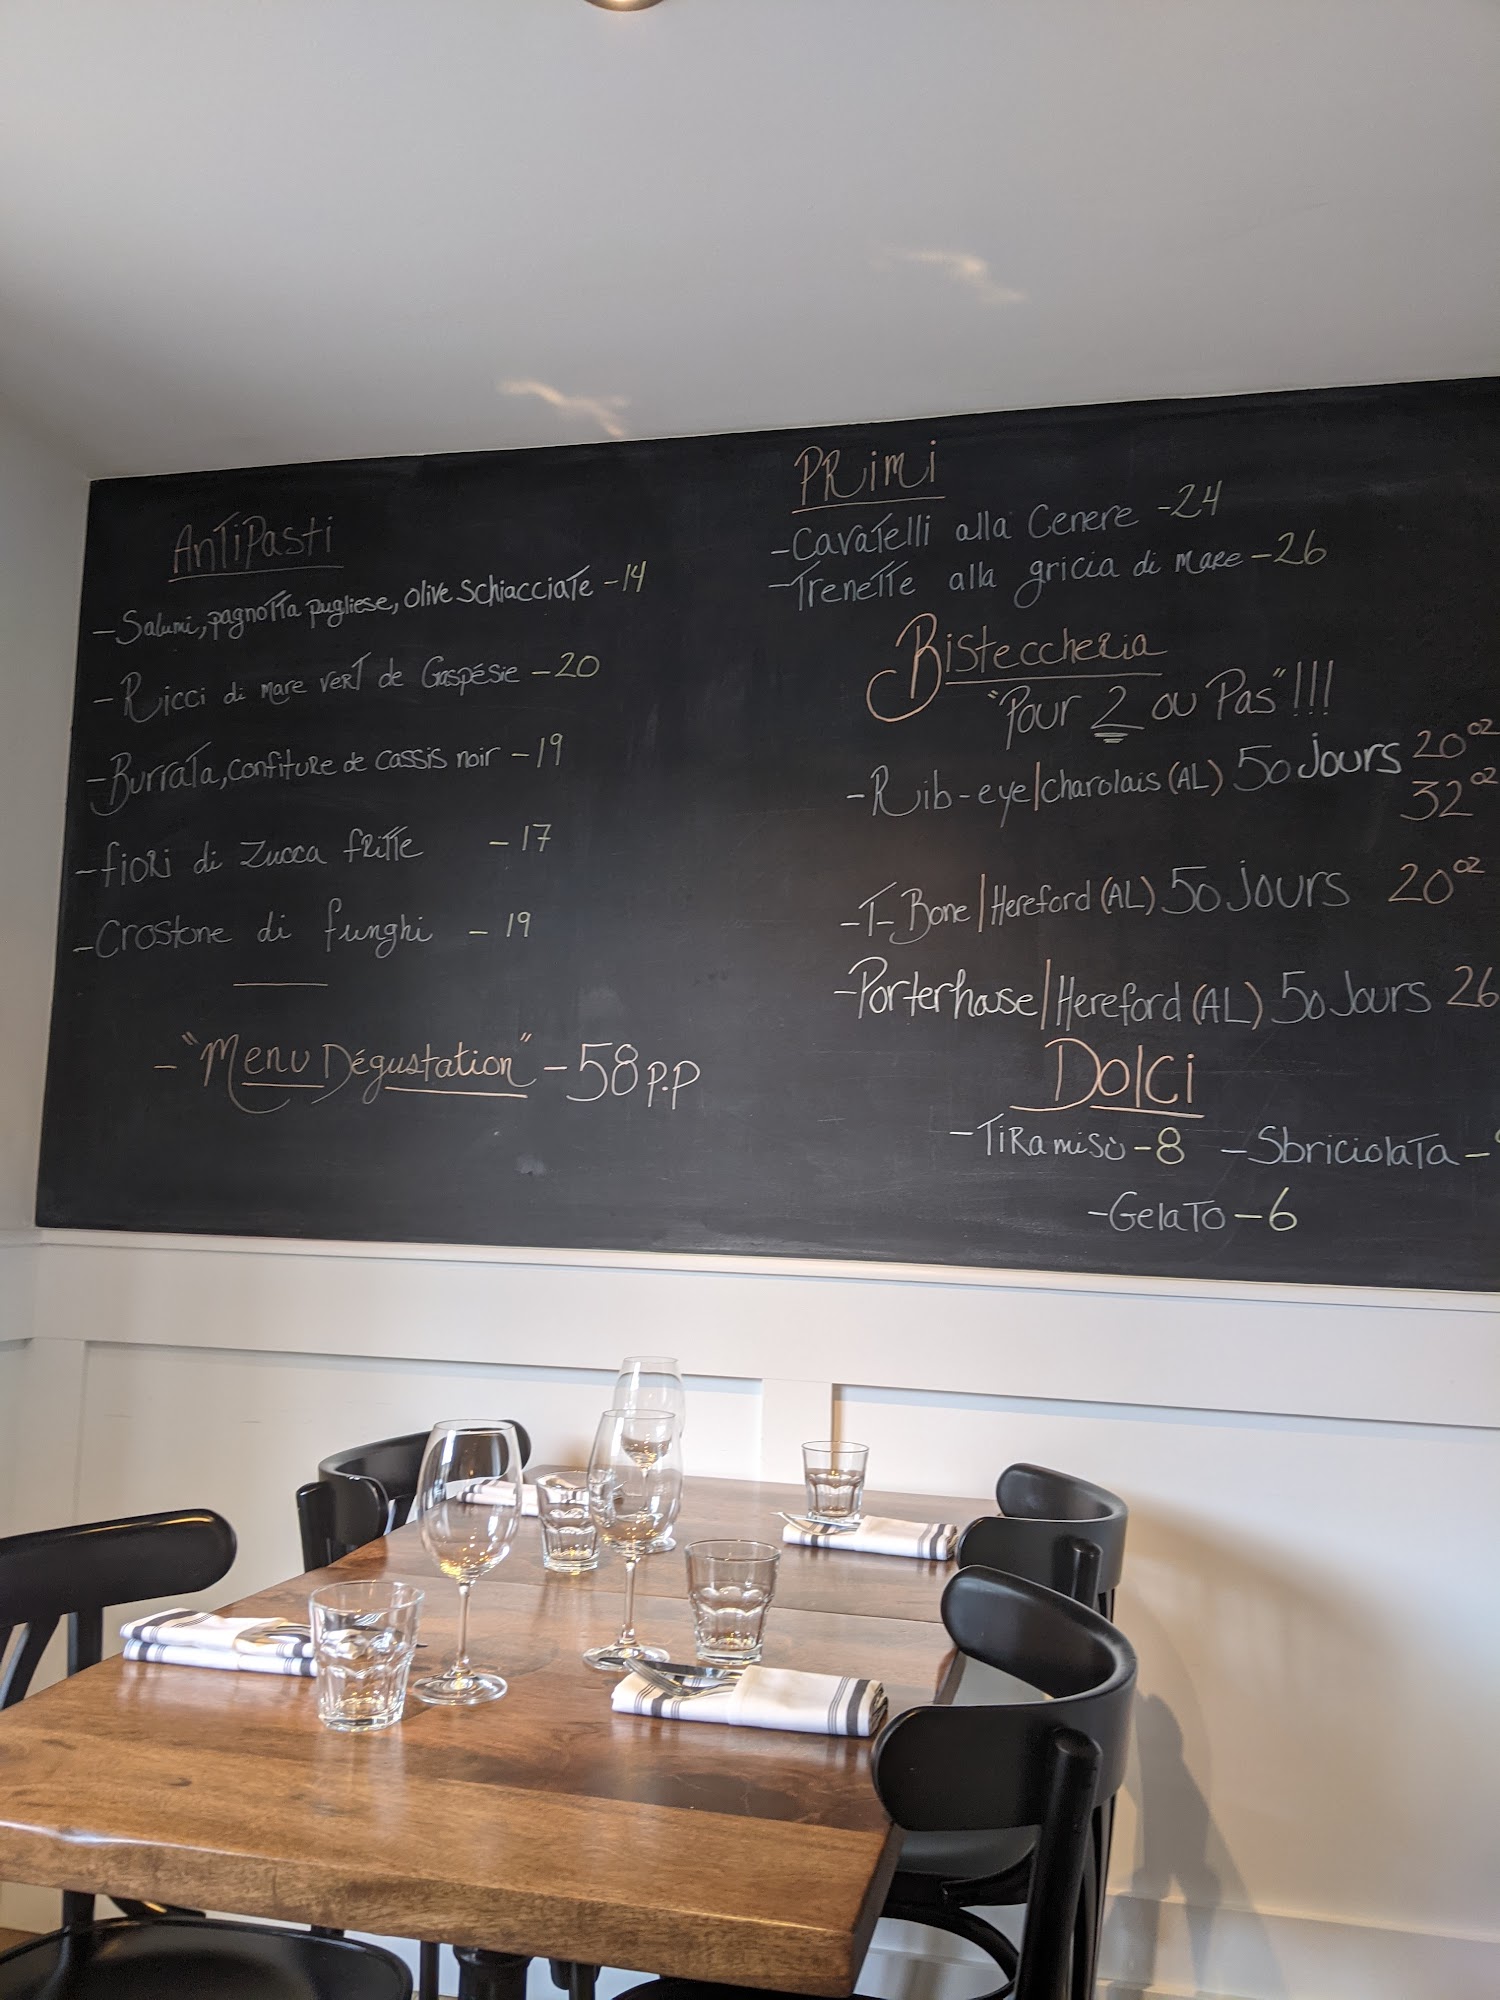 Antipasti
- Salumi, pagnotta pugliese, olive schiacciate - 14
- Ricci di mare vert de Gaspésie - 20
- Burrata, confiture de cassis noir - 19
- fiori di zucca fritte - 17
- Crostone di funghi - 19
- "Menu Dégustation" - 58 p.p
Primi
- Cavatelli alla Cenere - 24
- Trenette alla gricia di mare - 26
Bisteccheria
"Pour 2 ou Pas"!!!
- Rib-eye/charolais (AL) 50 jours 20oz
32oz
- T-Bone/Hereford (AL) 50 jours 20oz
- Porterhouse/Hereford (AL) 50 Jours 26
Dolci
- Tiramisù - 8 - Sbriciolata -
- Gelato - 6